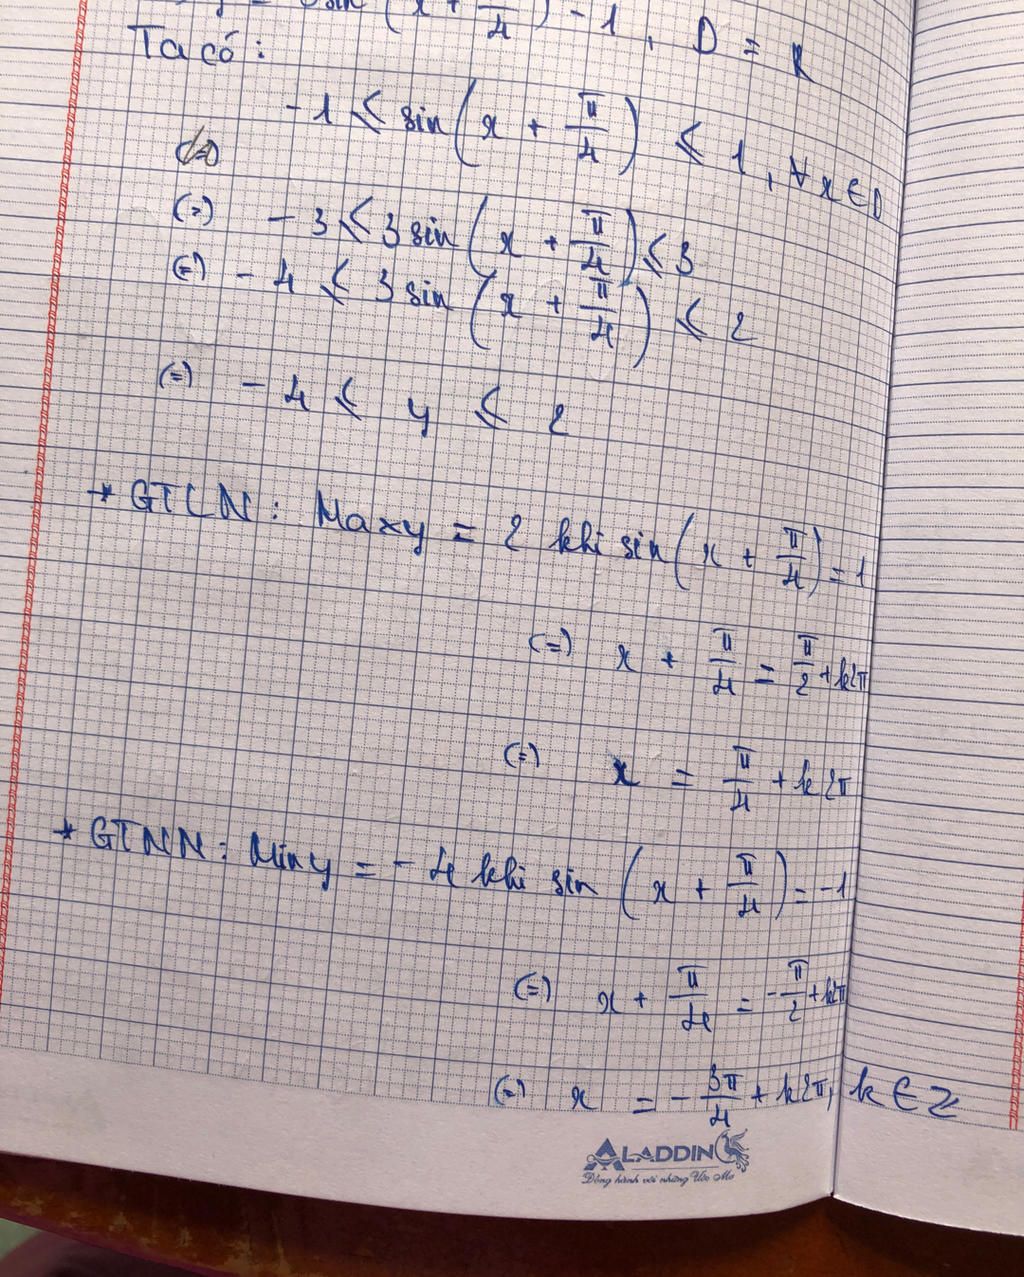 y = 3 sin (x + π/4) - 1, D = R
Ta có:
-1 ⩽ sin(x + π/4) ⩽ 1, ∀x ∈ D
(=) -3 ⩽ 3 sin(x + π/4) ⩽ 3
(=) -4 ⩽ 3 sin(x + π/4) ⩽ 2
(=) -4 ⩽ y ⩽ 2
* GTLN: Maxy = 2 khi sin(x + π/4) = 1
(=) x + π/4 = π/2 + k2π
(=) x = π/4 + k2π
* GTNN: Miny = -4 khi sin (x + π/4) = -1
(=) x + π/4 = -π/2 + k2π
(=) x = -3π/4 + k2π, k ∈ Z
ALADDIN
Đồng hành với những Ước Mơ